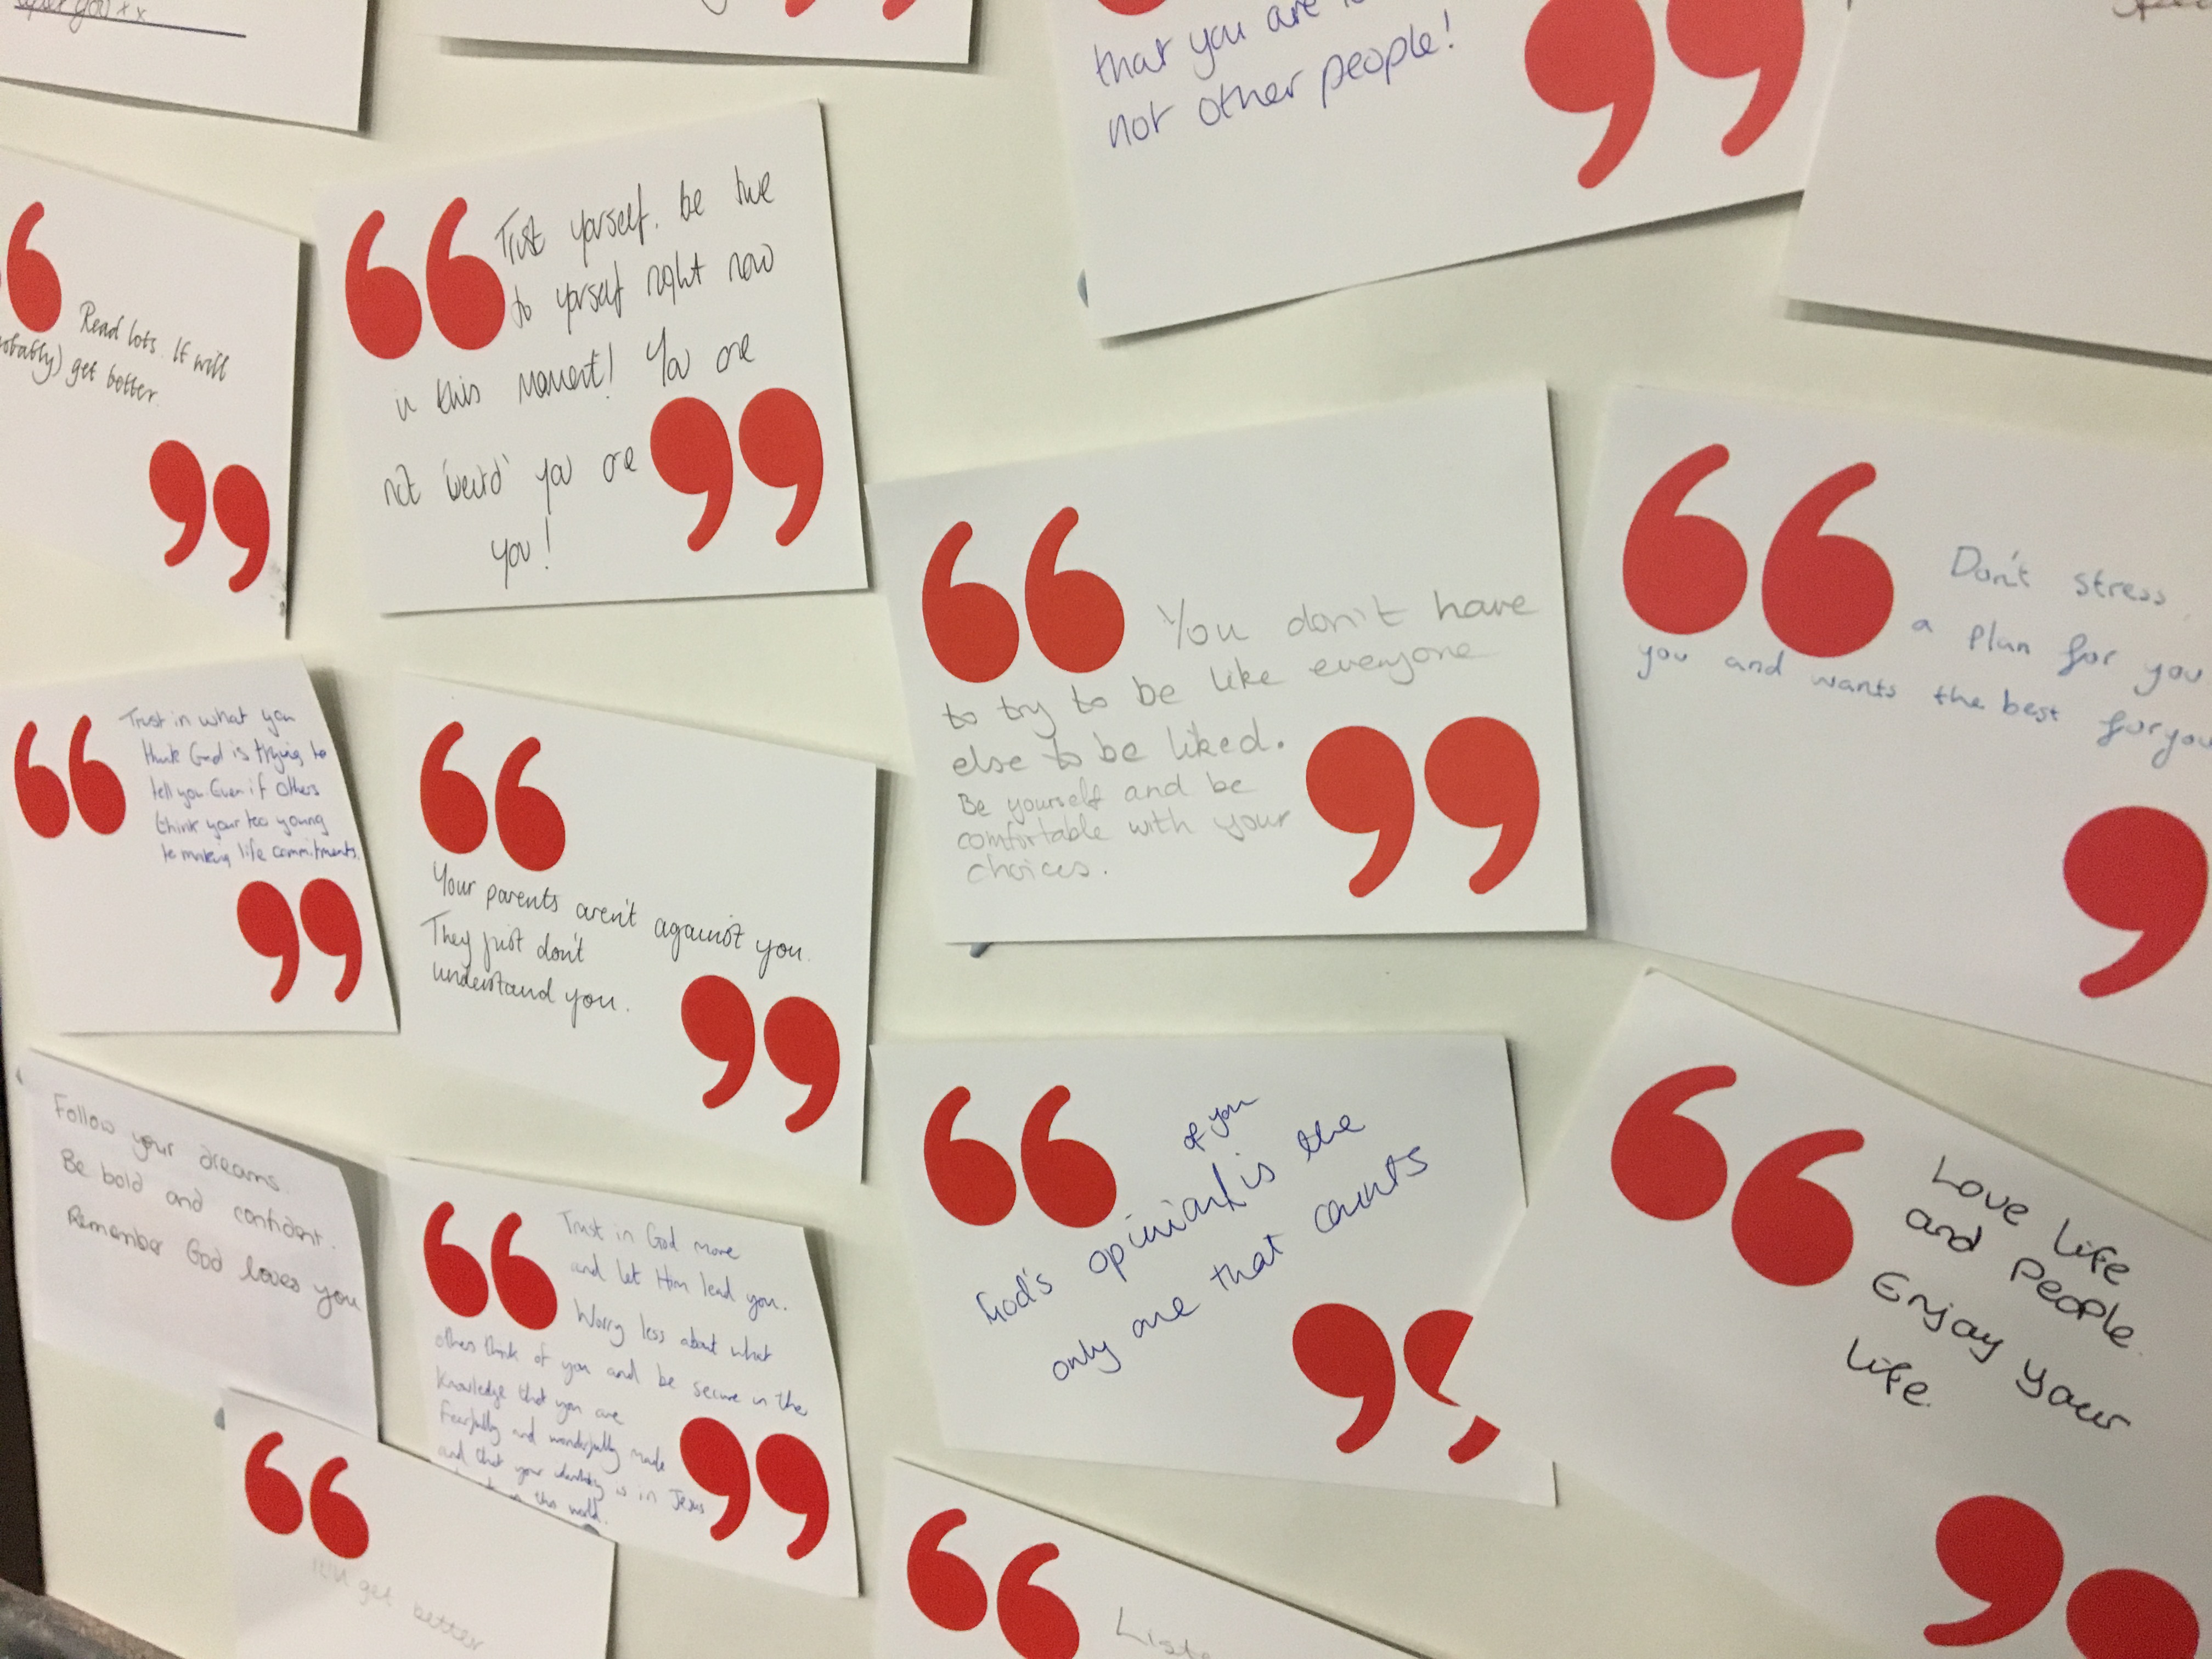 you xx
that you are
not other people!
Read lots. It will
get better.
Trust yorself. be true
to yorself right now
in this moment! You are
not 'weird' you are
you!
You don't have
to try to be like everyone
else to be liked.
Be yourself and be
comfortable with your
choices.
Don't stress.
a plan for you
you and wants the best for you
Trust in what you
think God is trying to
tell you. Even if others
think your too young
to making life commitments.
Your parents aren't against you.
They just don't
understand you.
Follow your dreams.
Be bold and confident.
Remember God loves you
Trust in God more
and let Him lead you.
Worry less about what
others think of you and be secure in the
knowledge that you are
fearfully and wonderfully made
and that your identity is in Jesus
in this world.
of you
God's opinion is the
only one that counts
Love life
and people.
Enjoy your
life.
It'll get better